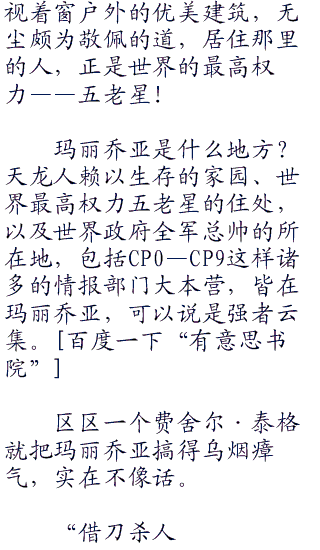 视着窗户外的优美建筑，无
尘颇为敬佩的道，居住那里
的人，正是世界的最高权
力——五老星！
玛丽乔亚是什么地方？
天龙人赖以生存的家园、世
界最高权力五老星的住处，
以及世界政府全军总帅的所
在地，包括CP0—CP9这样诸
多的情报部门大本营，皆在
玛丽乔亚，可以说是强者云
集。[百度一下“有意思书
院”]
区区一个费舍尔·泰格
就把玛丽乔亚搞得乌烟瘴
气，实在不像话。
“借刀杀人